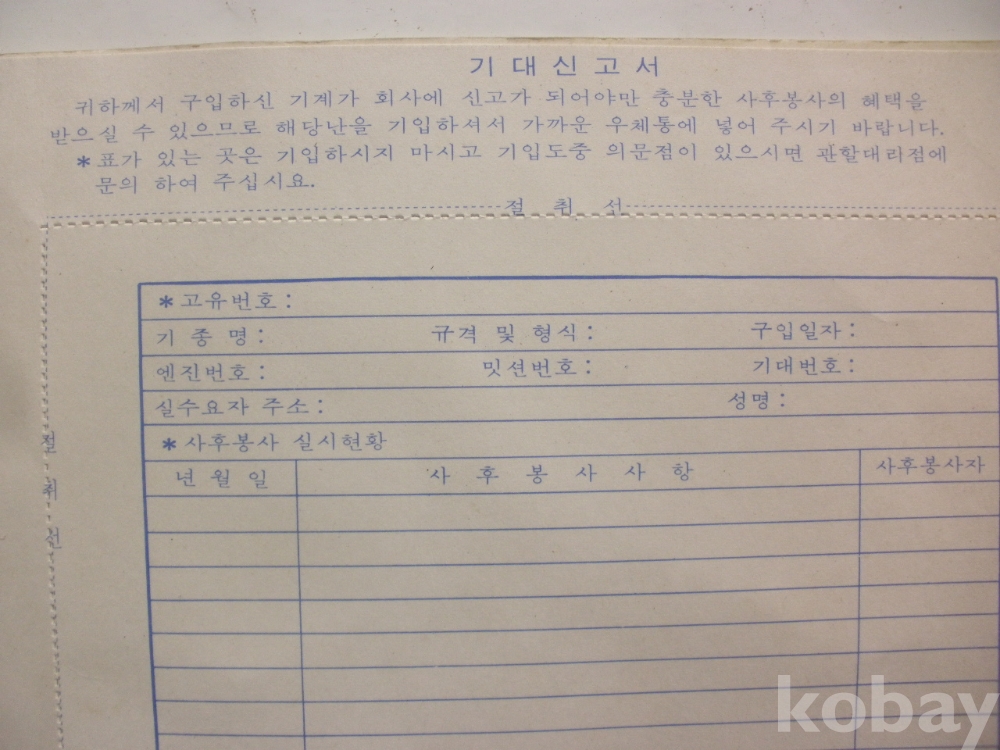 기대신고서
귀하께서 구입하신 기계가 회사에 신고가 되어야만 충분한 사후봉사의 혜택을
받으실 수 있으므로 해당난을 기입하셔서 가까운 우체통에 넣어 주시기 바랍니다.
*표가 있는 곳은 기입하시지 마시고 기입도중 의문점이 있으시면 관할대라점에
문의 하여 주십시요.
절 취 선
*고유번호:
기 종 명: 규격 및 형식: 구입일자:
엔진번호: 밋션번호: 기대번호:
실수요자 주소: 성명:
*사후봉사 실시현황
년 월 일 사 후 봉 사 사 항 사후봉사자
절
취
선
kobay